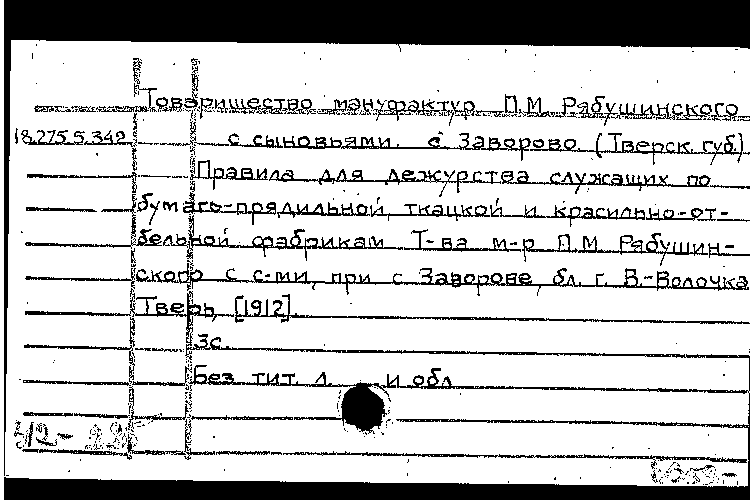 Товарищество мануфактур П.М. Рябушинского
18.275.5.342 с сыновьями. с Заворово (Тверск. губ.)
Правила для дежурства служащих по
бумаго-прядильной, ткацкой и красильно-от-
бельной фабрикам Т-ва м-р П.М. Рябушин-
ского с с-ми, при с Заворове, бл. г. В.-Волочка
Тверь, [1912].
3с.
Без тит. л. и обл